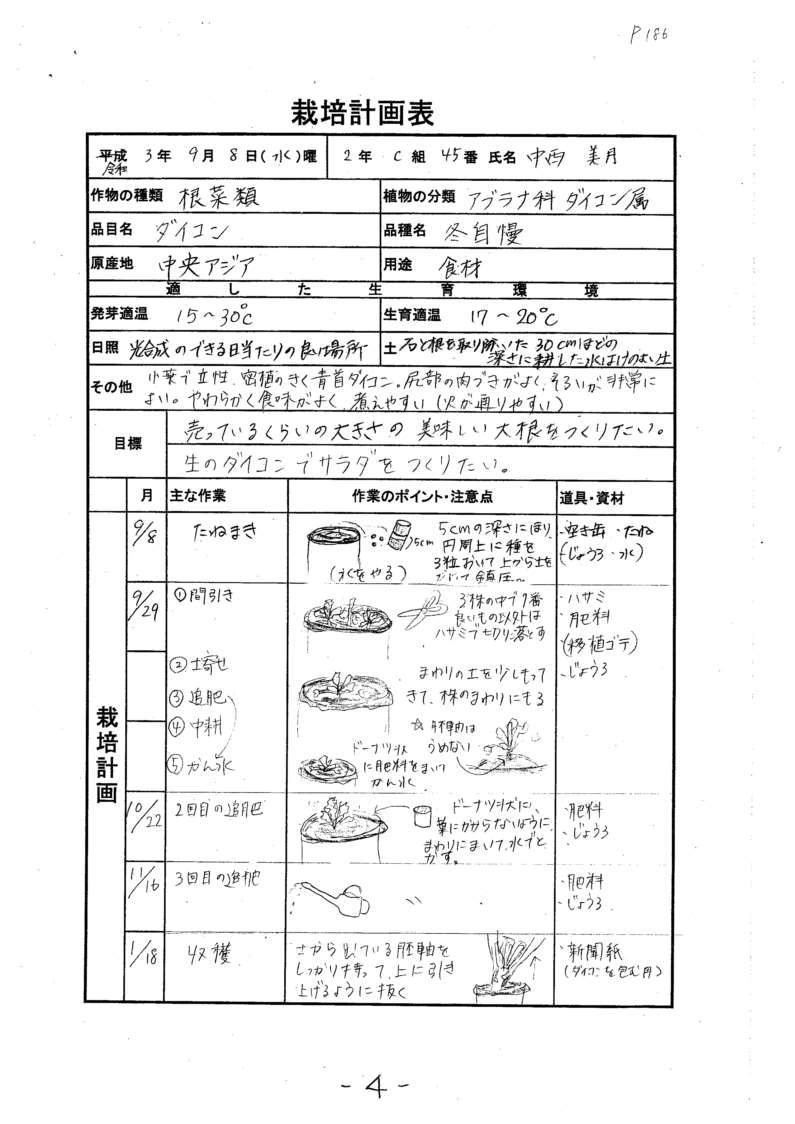 P186
栽培計画表
平成 3年 9月 8日(水)曜 2年 C組 45番 氏名 中西 美月
令和
作物の種類 根菜類 植物の分類 アブラナ科 ダイコン属
品目名 ダイコン 品種名 冬自慢
原産地 中央アジア 用途 食材
適した生育環境
発芽適温 15～30℃ 生育適温 17～20℃
日照 光合成のできる日当たりの良い場所 土 石と根を取り除いた30cmほどの
深さに耕した水はけのよい土
その他 小葉で立性、密植のきく青首ダイコン。尻部の肉づきがよく、そろいが非常に
よい。やわらかく食味がよく、煮えやすい(火が通りやすい)
目標 売っているくらいの大きさの 美味しい大根をつくりたい。
生のダイコンでサラダをつくりたい。
栽培計画
月 主な作業 作業のポイント・注意点 道具・資材
9/8 たねまき
(水をやる)
5cm
5cmの深さにほり、
円周上に種を
3粒おいて上から土を
鎮圧~
・空き缶・たね
(じょうろ・水)
9/29 ①間引き
3株の中で1番
良いもの以外は
ハサミで切り落とす
・ハサミ
・肥料
(移植ゴテ)
・じょうろ
②土寄せ
まわりの土を少しもって
きて、株のまわりにもる
③追肥
④中耕
⑤かん水
ドーナツ状
に肥料をまいて
かん水
☆胚軸は
うめない
10/22 2回目の追肥
ドーナツ状に、
葉にかからないように、
まわりにまいて、水でと
かす。
・肥料
・じょうろ
11/16 3回目の追肥
〃
・肥料
・じょうろ
1/18 収穫
さから出ている胚軸を
しっかり持って、上に引き
上げるように抜く
・新聞紙
(ダイコンを包む用)
- 4 -